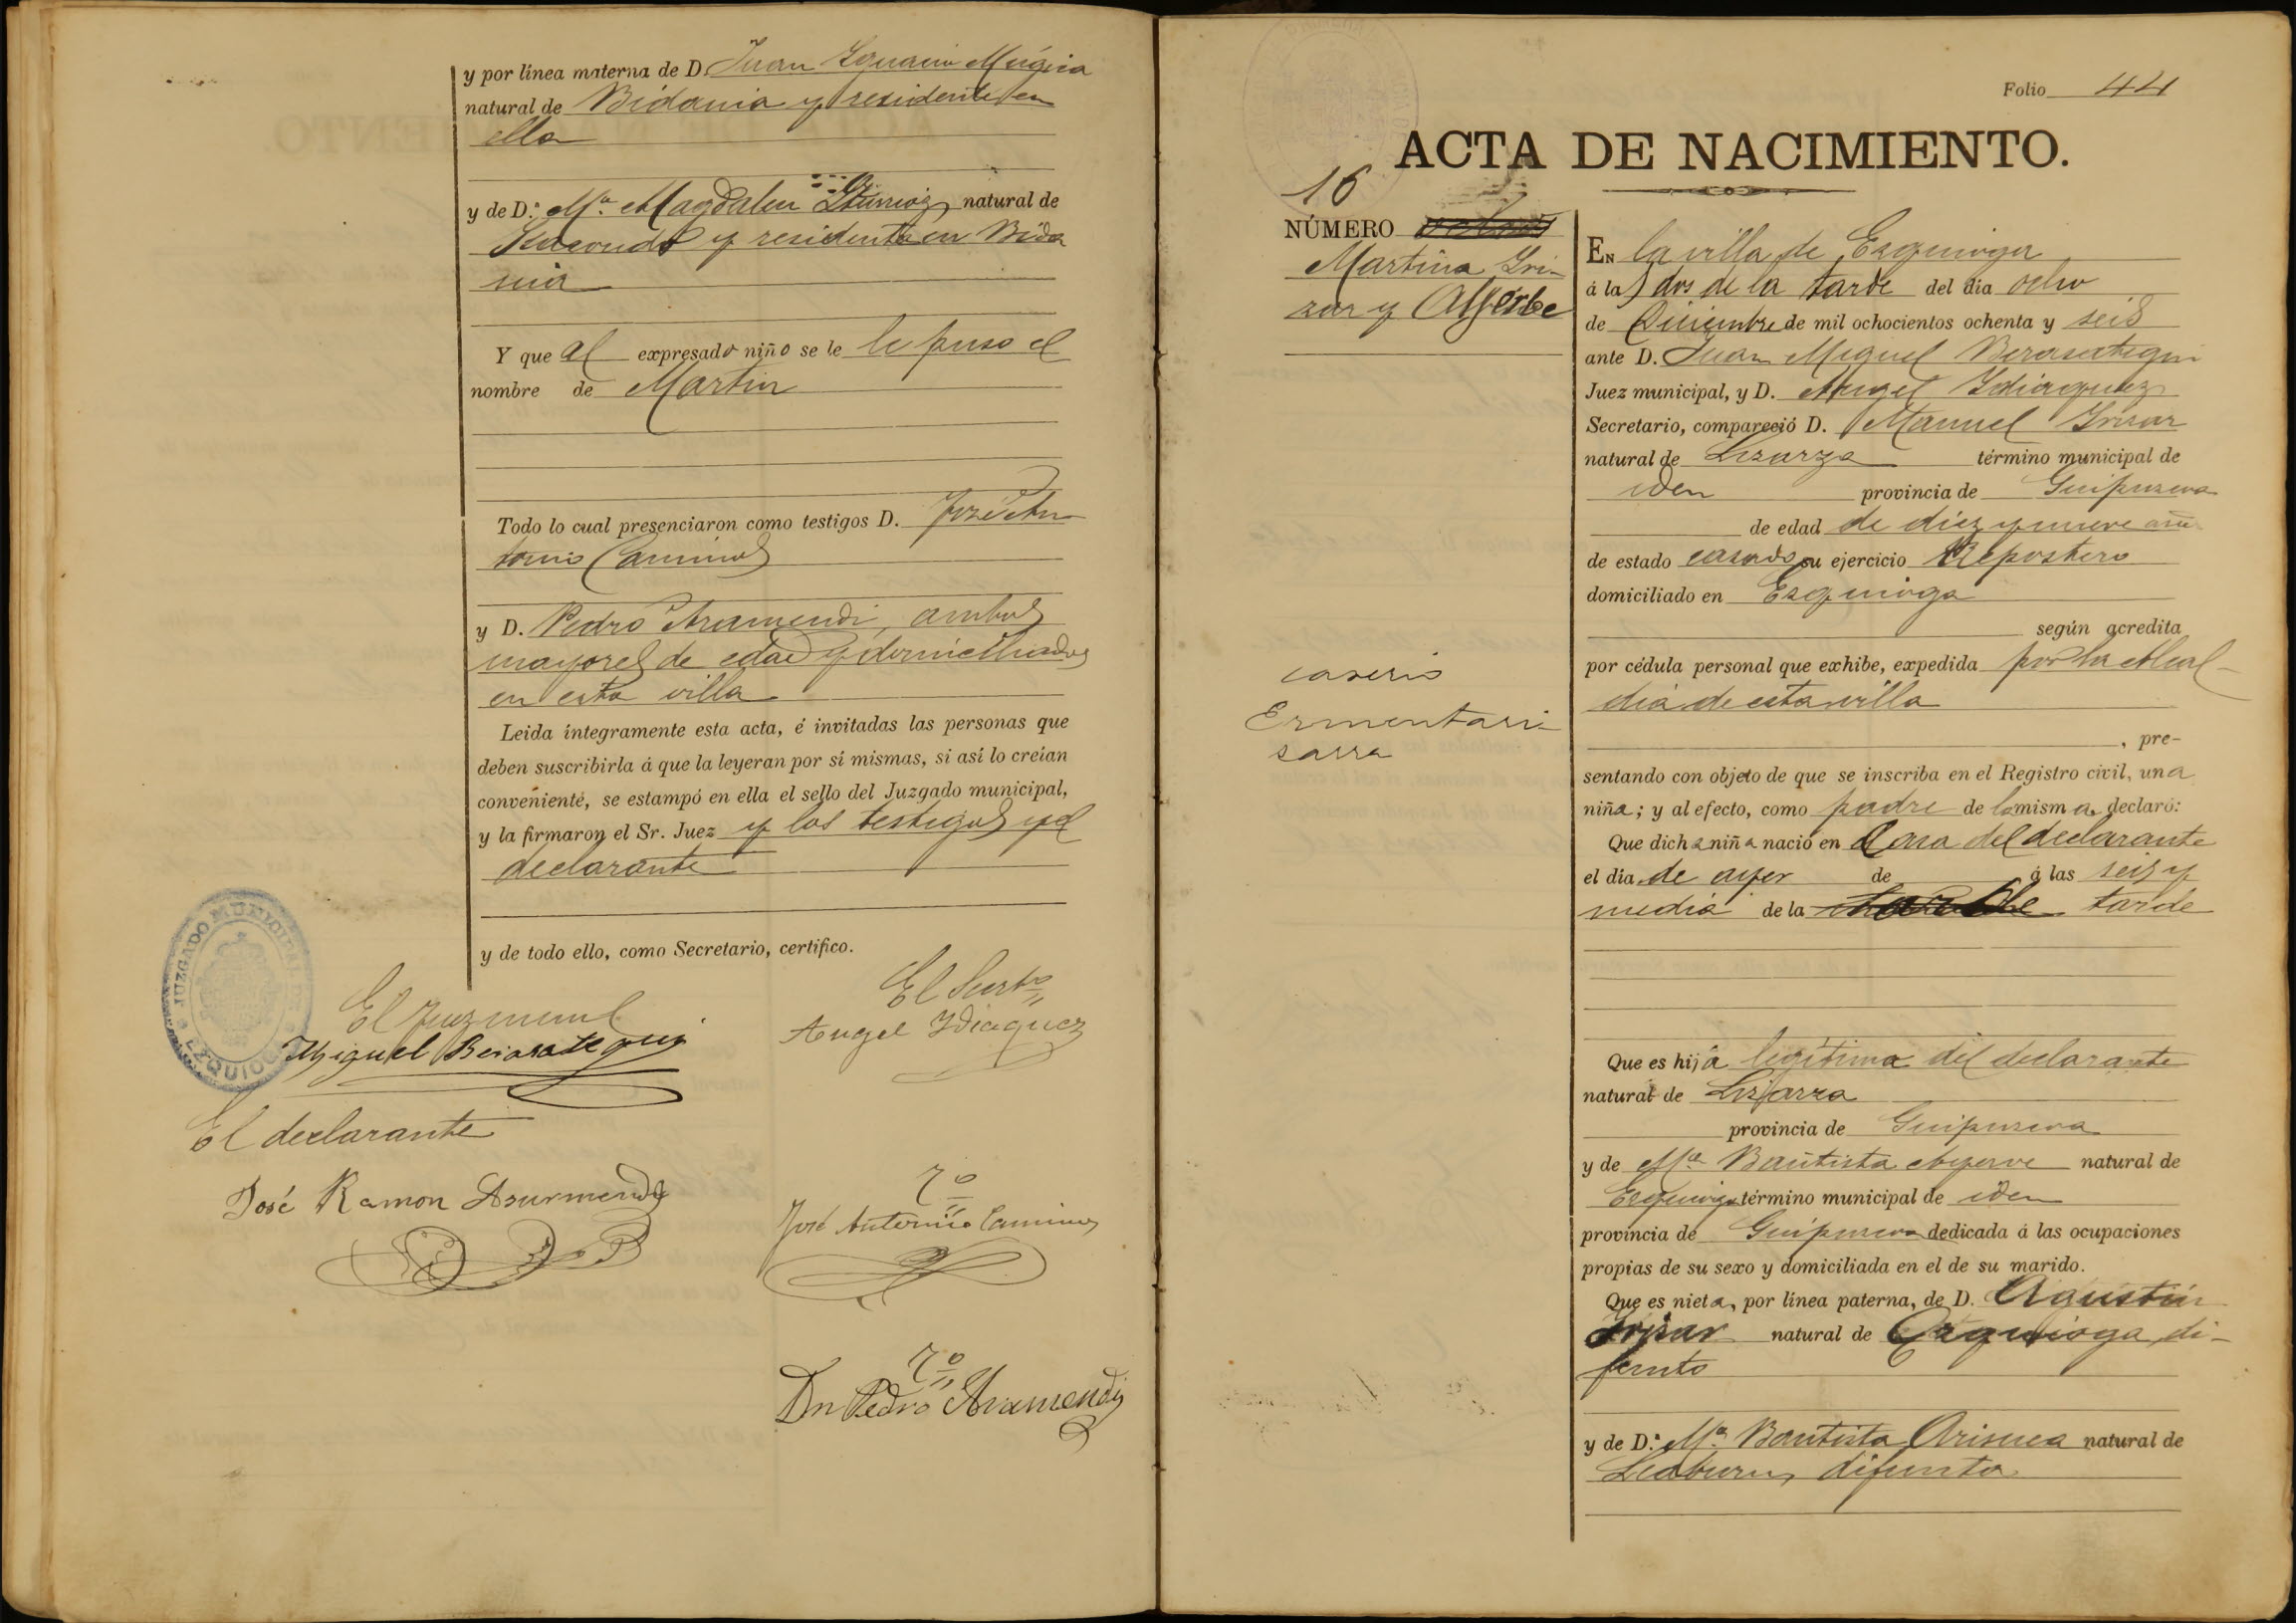 y por línea materna de D. Juan Ygnacio Múgica
natural de Bidania y residente en
ella
y de D.ª Mª Magdalen natural de
y residente en Bida
nia
Y que al expresado niño se le le puso el
nombre de Martin
Todo lo cual presenciaron como testigos D. José An
tonio Caminos
y D. Pedro Aramendi, ambos
mayores de edad y domiciliados
en esta villa
Leida íntegramente esta acta, é invitadas las personas que
deben suscribirla á que la leyeran por sí mismas, si así lo creían
conveniente, se estampó en ella el sello del Juzgado municipal,
y la firmaron el Sr. Juez y los testigos y el
declarante
y de todo ello, como Secretario, certifico.
JUZGADO MUNICIPAL DE EZQUIOGA
El Juez munl.
El Secrto
Miguel Berasategui
Angel Ydiaquez
El declarante
José Ramon Asurmendi
Tº
José Antonio Caminos
Tº
Dn Pedro Aramendi
Folio 44
ACTA DE NACIMIENTO.
16
NÚMERO
Martina Yri-
zar y Ayerbe
caserio
Ermentari-
sarra
EN la villa de Ezquioga
á las dos de la tarde del día ocho
de Diciembre de mil ochocientos ochenta y seis
ante D. Juan Miguel Berasategui
Juez municipal, y D. Angel Ydiaquez
Secretario, compareció D. Manuel Yrizar
natural de Lizarza término municipal de
iden provincia de Guipuzcoa
de edad de diez y nueve años
de estado casado su ejercicio Repostero
domiciliado en Ezquioga
según acredita
por cédula personal que exhibe, expedida por la Alcal-
dia de esta villa
, pre-
sentando con objeto de que se inscriba en el Registro civil, una
niña; y al efecto, como padre de la misma, declaró:
Que dicha niña nació en Casa del declarante
el día de ayer de á las seis y
media de la tarde
Que es hija legítima del declarante
natural de Lizarza
provincia de Guipuzcoa
y de Mª Bautista Ayerve natural de
Ezquioga término municipal de iden
provincia de Guipuzcoa dedicada á las ocupaciones
propias de su sexo y domiciliada en el de su marido.
Que es nieta, por línea paterna, de D. Agustin
Yrizar natural de Ezquioga di-
funto
y de D.ª Mª Bautista natural de
Leaburu, difunta